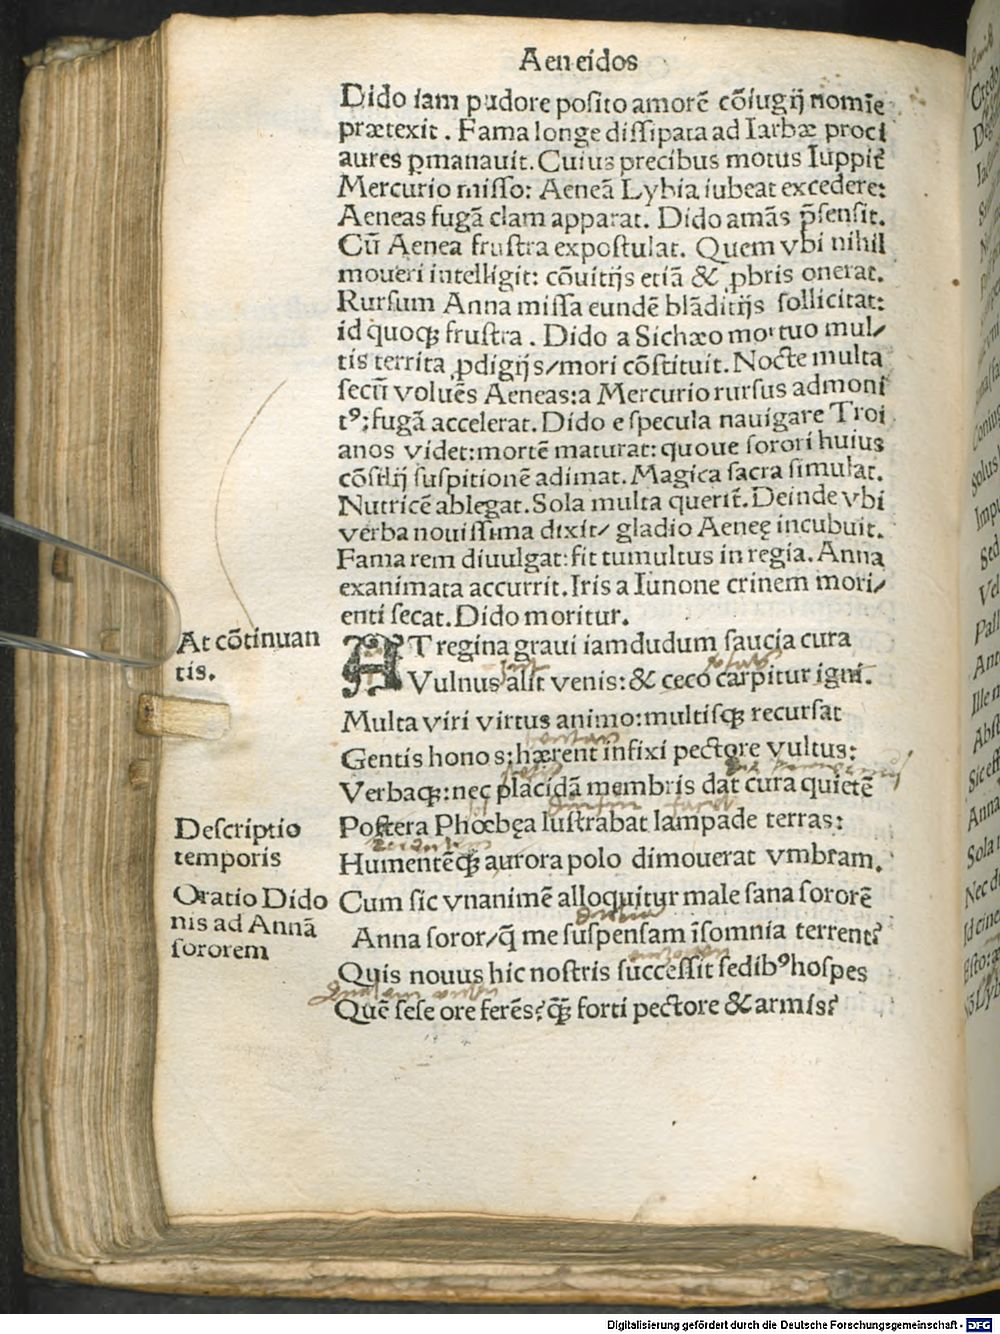 Aeneidos
Dido iam pudore posito amorē cōiugij nomīe
prætexit. Fama longe dissipata ad Iarbæ proci
aures ꝑmanauit. Cuius precibus motus Iuppit̄
Mercurio misso: Aeneā Lybia iubeat excedere:
Aeneas fugā clam apparat. Dido amās p̄sensit.
Cū Aenea frustra expostulat. Quem vbi nihil
moueri intelligit: cōuitijs etiā & ꝓbris onerat.
Rursum Anna missa eundē blāditijs sollicitat:
id quoqꝫ frustra. Dido a Sichæo mortuo mul/
tis territa ꝓdigijs/mori cōstituit. Nocte multa
secū voluēs Aeneas: a Mercurio rursus admoni
tꝰ: fugā accelerat. Dido e specula nauigare Troi
anos videt: mortē maturat: quoue sorori huius
cōsilij suspitionē adimat. Magica sacra simulat.
Nutricē ablegat. Sola multa querit̄. Deinde vbi
verba nouissima dixit/ gladio Aeneę incubuit.
Fama rem diuulgat: fit tumultus in regia. Anna
exanimata accurrit. Iris a Iunone crinem mori/
enti secat. Dido moritur.
At cōtinuan
tis.
AT regina graui iamdudum saucia cura
Vulnus alit venis: & ceco carpitur igni.
Multa viri virtus animo: multisqꝫ recursat
Gentis honos: hærent infixi pectore vultus:
Verbaqꝫ: nec placidā membris dat cura quietē
Descriptio
temporis
Postera Phœbęa lustrabat lampade terras:
Humentēqꝫ aurora polo dimouerat vmbram.
Oratio Dido
nis ad Annā
sororem
Cum sic vnanimē alloquitur male sana sororē
Anna soror/q̄ me suspensam īsomnia terrent?
Quis nouus hic nostris successit sedibꝰ hospes
Quē sese ore ferēs? qꝫ̄ forti pectore & armis?
Digitalisierung gefördert durch die Deutsche Forschungsgemeinschaft - DFG